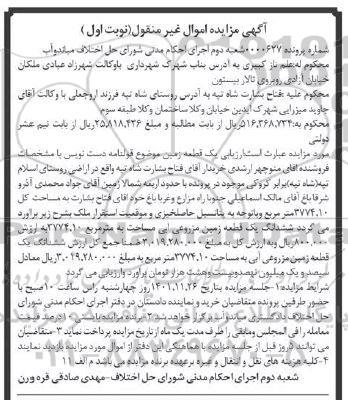 آگهی مزایده اموال غیر منقول(نوبت اول)
شماره پرونده ۰۰۰۰۶۲۷شعبه دوم اجرای احکام مدنی شورای حل اختلاف میاندوآب
محکوم له:علم ناز کبیری به آدرس بناب شهرک شهرداری باوکالت شهرزاد عبادی ملکان
خیابان آزادی روبروی تالار بیستون
محکوم علیه :فتاح بشارت شاه تپه به آدرس روستای شاه تپه فرزند اروجعلی با وکالت آقای
جاوید میرزایی شهرک آیدین خیابان وکلا ساختمان وکلا طبقه سوم
محکوم به:۵۱۶,۳۶۸,۷۳۴ریال از بابت مطالبه و مبلغ ۲۵,۸۱۸,۴۳۶ریال از بابت نیم عشر
دولتی
مورد مزایده عبارت است:ارزیابی یک قطعه زمین موضوع قولنامه دست نویس با مشخصات
فروشنده آقای منوچهر ارشدی خریدار آقای فتاح بشارت شاه تپه واقع در اراضی روستای اسلام
تپه(شاه تپه)برابر کروکی موجود در پرونده با حدود اربعه شمالا زمین آقای جواد محمدی آذر و
شرقا باغ آقای مالک اسماعیلی جنوبا راه مزارع و غربا باغ خود آقای فتاح بشارت به مساحت کل
۳۷۷۴.۱۰متر مربع وباتوجه به پتانسیل حاصلخیزی و موقعیت استقرار ملک بشرح زیر برآورد
می گردد ششدانگ یک قطعه زمین مزروعی آبی مساحت از قرار متر مربع ۳۷۷۴.۱۰به ارزش
۸۰۰.۰۰۰ریال وبه ارزش کل به مبلغ ۳.۰۱۹.۲۸۰.۰۰۰ضمنا جمع کل ارزش ششدانگ یک
قطعه زمین مزروعی آبی به مساحت ۳۷۷۴.۱۰متر مربع به مبلغ ۳.۰۱۹.۲۸۰.۰۰۰ریال معادل
سیصد و یک میلیون نهصد و بیست وهشت هزار تومان برآورد وارزیابی می گردد
شرایط مزایده۱-جلسه مزایده بتاریخ ۱۴۰۱.۱۱.۲۶روز چهارشنبه راس ساعت ۱۰صبح با
حضور طرفین پرونده متقاضیان خرید و نماینده دادستان در دفتر اجرای احکام مدنی شورای
حل اختلاف
معامله را فی المجلس ومابقی را ظرف مدت یک ماه از تاریخ مزایده پرداخت نماید ۳-متقاضیان
می توانند روز قبل از جلسه مزایده با هماهنگی این دفتر از اموال مورد مزایده بازدید نمایند
۴-کلیه هزینه های نقل و انتقال و غیره برعهده برنده مزایده می باشد م الف ۱۱
شعبه دوم اجرای احکام مدنی شورای حل اختلاف-مهدی صادقی قره وورن